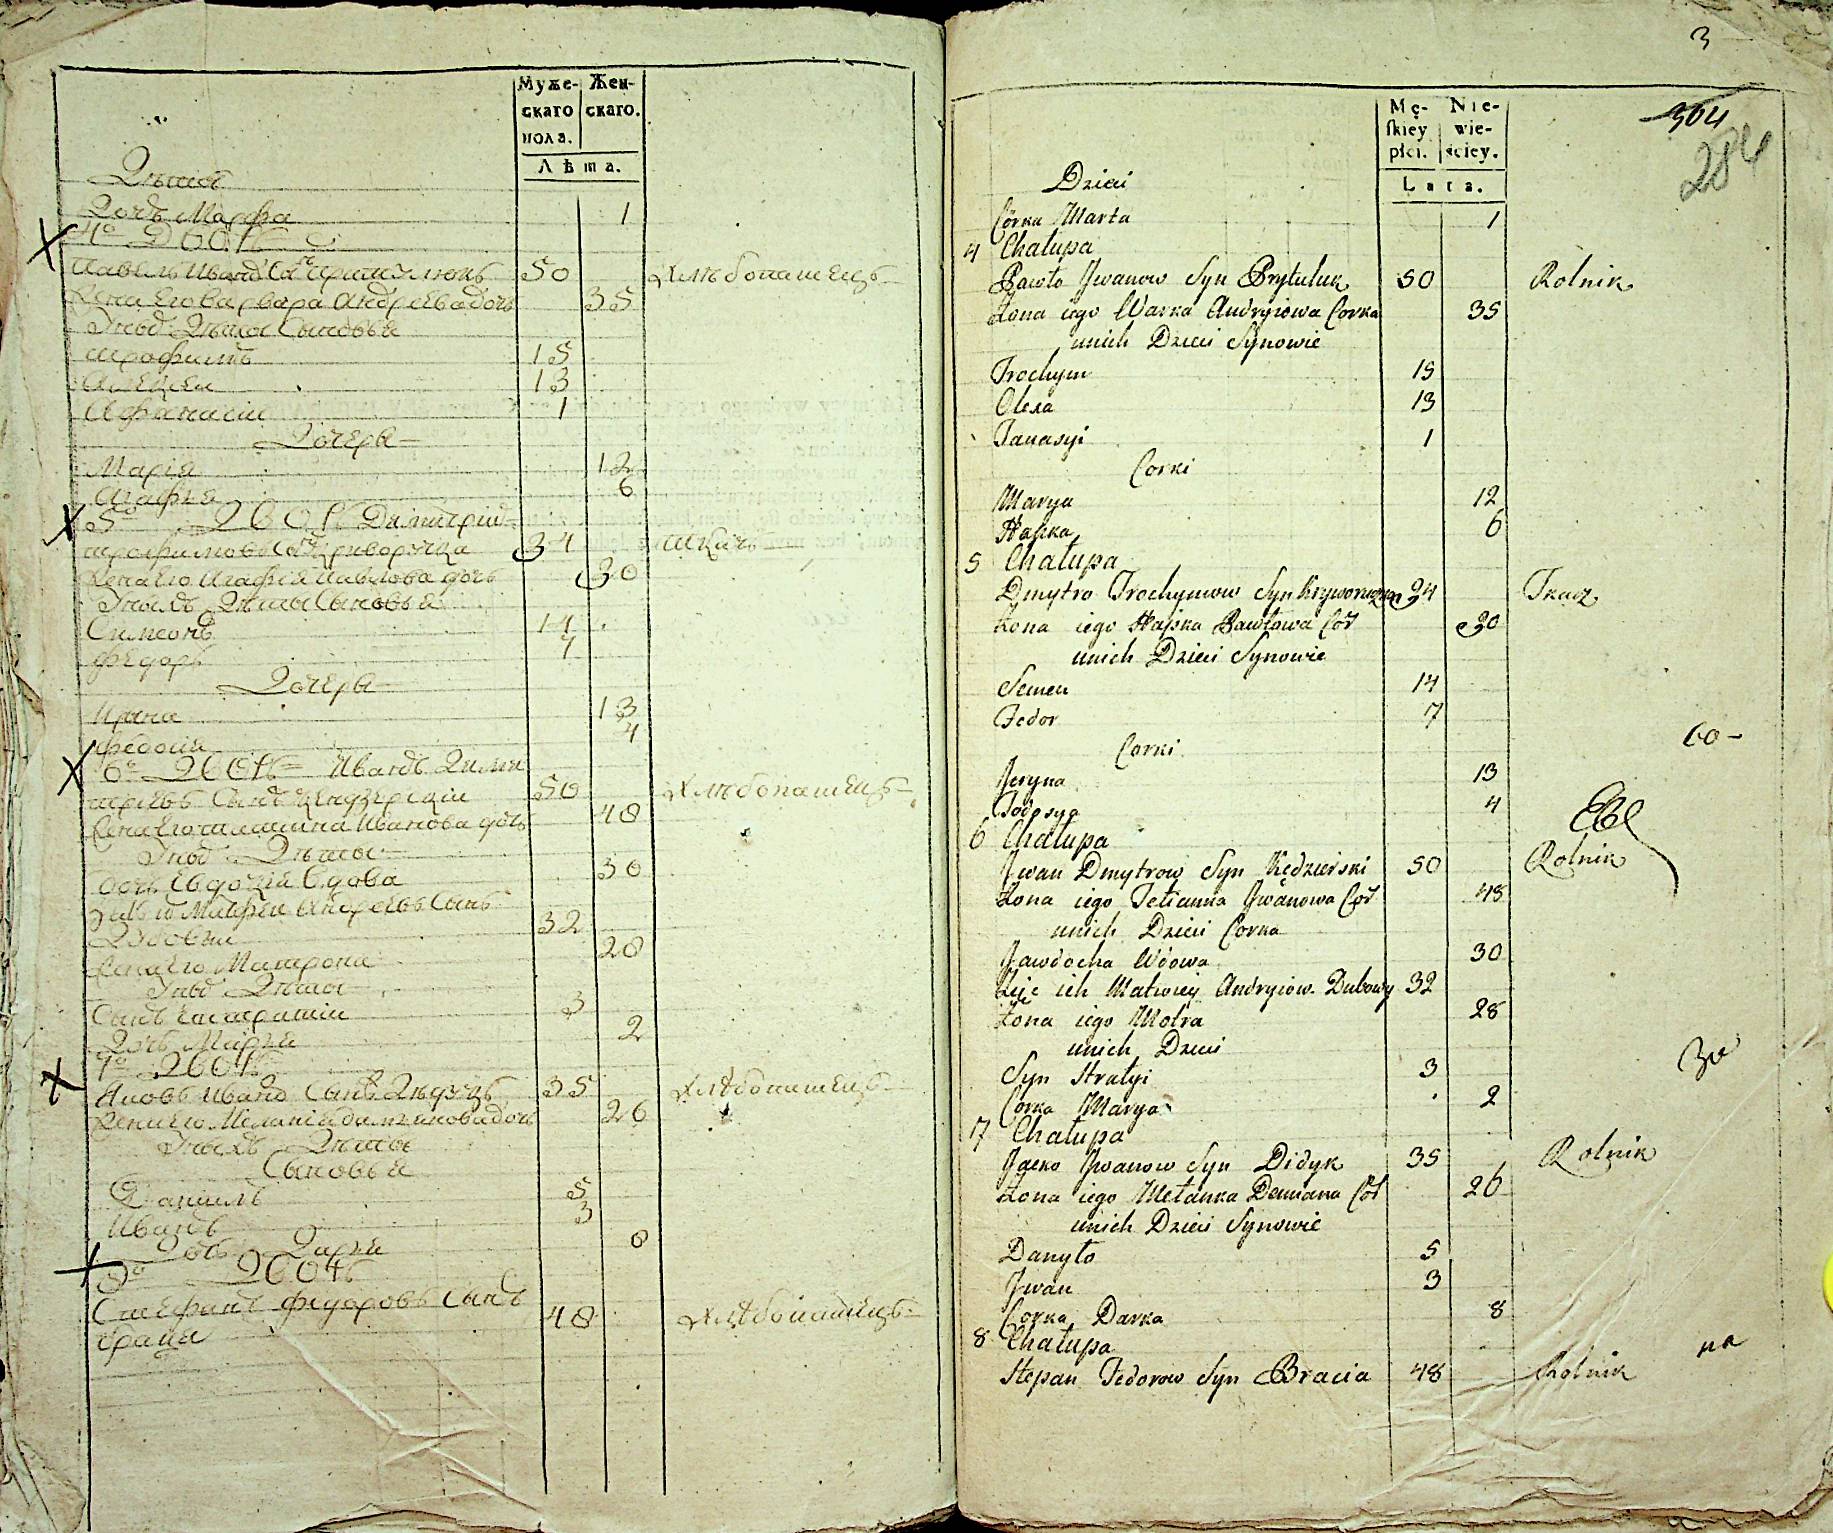 Муже-
скаго
пола.
Жен-
скаго.
Лѣта.
Дѣти
Дочь Марфа 1
4º Дворъ
Павелъ Ивановъ Сынъ Притулюкъ 50 Хлѣбопашецъ
Жена Его Варвара Андреева дочь 35
У нихъ Дѣти Сыновья
Трофимъ 15
Алексеи 13
Афанасіи 1
Дочери
Марія 12
Агафья 6
5º Дворъ Димитріи
Трофимовъ Сынъ Криворучка 34 Ткачь
Жена Его Агафія Павлова дочь 30
У нихъ Дѣти Сыновья
Симеонъ 14
Федоръ 7
Дочери
Ирина 13
Федосія 4
6º Дворъ Иванъ Дими
тріевъ Сынъ Кендзерскіи 50 Хлѣбопашецъ
Жена Его Татиана Иванова дочь 48
У нихъ Дѣти
дочь Евдокія Вдова 30
Зять их Матфеи Андреевъ Сынъ
Дубовыи 32
Жена Его Матрона 28
У нихъ Дѣти
Сынъ Евстратіи 3
Дочь Марія 2
7º Дворъ
Яковъ Ивановъ Сынъ Дидукъ 35 Хлѣбопашецъ
Жена Его Меланія Даміанова дочь 26
У нихъ Дѣти
Сыновья
Даніилъ 5
Иванъ 3
Дочь Дарья 8
8º Дворъ
Стефанъ Федоровъ Сынъ 48 Хлѣбопашецъ
3
Mę-
skiey
płci.
Nie-
wie-
sciey.
Lata.
364
284
Dzieci
Córka Marta 1
4 Chałupa
Pawło Jwanow Syn Prytuluk 50 Rolnik
Żona iego Warka Andryiowa Corka 35
unich Dzieci Synowie
Trochym 15
Olexa 13
Tanasyi 1
Corki
Marya 12
Hapka 6
5 Chałupa
Dmytro Trochymow Syn Kryworuczka 34 Tkacz
Żona iego Hapka Pawłowa Cór 30
unich Dzieci Synowie
Semen 14
Fedor 7
Corki
Jeryna 13
Fedosya 4
6 Chałupa
Jwan Dmytrow Syn Kędzierski 50 Rolnik
Żona iego Tetianna Jwanowa Cór 48
unich Dzieci Corka
Jawdocha Wdowa 30
Zięć ich Matwiey Andryiow Dubowy 32
Żona iego Motra 28
unich Dzieci
Syn Stratyi 3
Corka Marya 2
7 Chałupa
Jacko Jwanow Syn Didyk 35 Rolnik
Żona iego Mełanka Demiana Cór 26
unich Dzieci Synowie
Danyło 5
Jwan 3
Corka Darka 8
8 Chałupa
Stepan Fedorow Syn Bracia 48 Rolnik
na